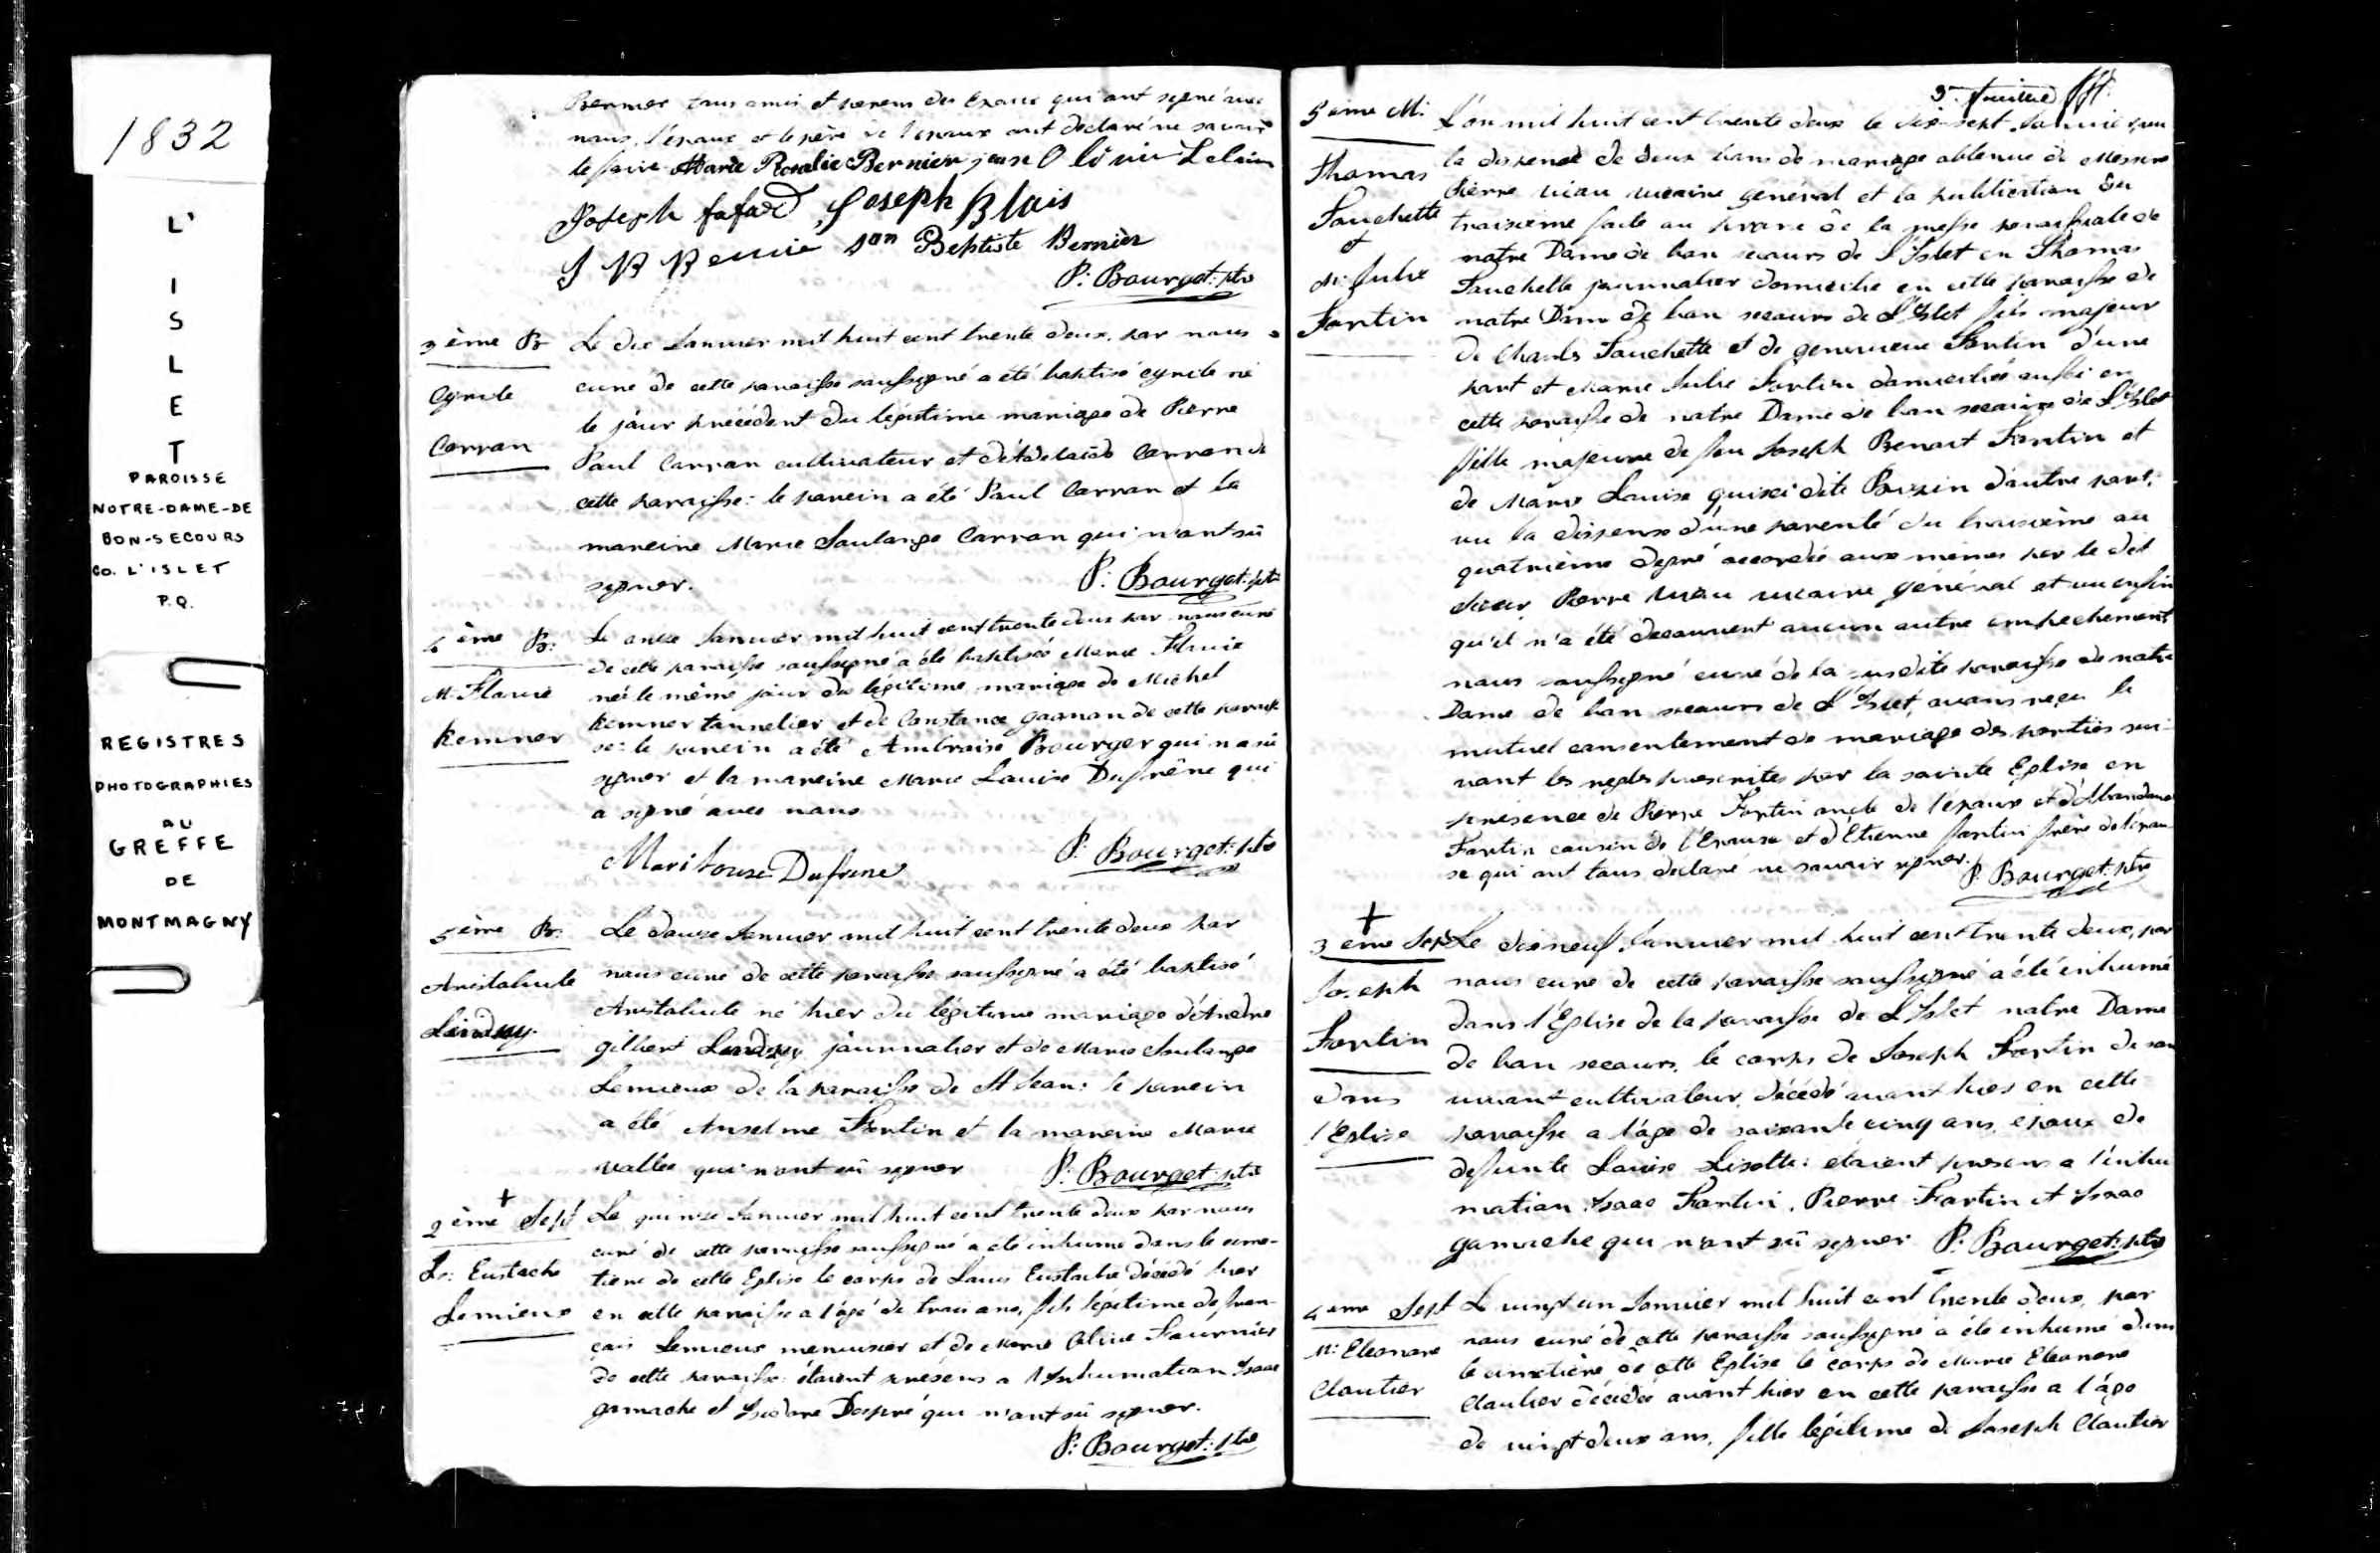 1832
L'
I
S
L
E
T
PAROISSE
NOTRE-DAME-DE
BON-SECOURS
CO. L'ISLET
P.Q.
REGISTRES
PHOTOGRAPHIES
AU
GREFFE
DE
MONTMAGNY
Bernier tous amis et parens des Epoux qui ont signé avec
nous, l'époux et le père de l'époux ont declaré ne savoir
le faire Marie Rosalie Bernier
Joseph fafard Joseph Blais
Baptiste Bernier
P: Bourget: ptre
3ème B
Cyrile
Carran
Le dix Janvier mil huit cent trente deux, par nous
curé de cette paroisse soussigné a été baptisé Cyrile né
le jour précédent du légitime mariage de Pierre
Paul Carran cultivateur et d'Adelaide Carran de
cette paroisse: le parein a été Paul Carran et la
mareine Marie Soulange Carran qui n'ont sû
signer. P: Bourget: ptre
4ème B:
M: Flavie
Kemner
Le onze Janvier mil huit cent trente deux par nous curé
de cette paroisse soussigné a été baptisée Marie Flavie
née le même jour du légitime mariage de Michel
Kemner tonnelier et de Constance gagnon de cette parois
se: le parein a été Ambroise Bourger qui n a sû
signer et la mareine Marie Louise Dufrêne qui
a signé avec nous
Mari Louise Dufrene P: Bourget: ptre
5ème B:
Aristabule
Lindsay
Le douze Janvier mil huit cent trente deux par
nous curé de cette paroisse soussigné a été baptisé
Aristabule né hier du légitime mariage d'André
gilbert Lindsay journalier et de Marie Soulange
Lemieux de la paroisse de St Jean: le parein
a été Anselme Fortin et la mareine Marie
vallée qui n'ont sû signer P: Bourget: ptre
+
2ème Sept
Ls: Eustache
Lemieux
Le quinze Janvier mil huit cent trente deux par nous
curé de cette paroisse soussigné a été inhumé dans le cime-
tiere de cette Eglise le corps de Louis Eustache décédé hier
en cette paroisse a l'age de trois ans, fils légitime de fran-
çois Lemieux menuisier et de Marie Olive Fournier
de cette paroisse: étaient présens a l'Inhumation Isaac
gamache et Isidore Després qui n'ont sû signer.
P: Bourget: ptre
3e. feuillet
5ème M:
Thomas
Fouchette
et
M: Julie
Fortin
L'an mil huit cent trente deux le dix sept Janvier, vu
la dispense de deux bans de mariage obtenue de Messire
Pierre viau vicaire général et la publication du
troisième faite au prone de la messe paroissiale de
notre Dame de bon secours de L'Islet en Thomas
Fouchette journalier domicilié en cette paroisse de
notre Dame de bon secours de L'Islet fils majeur
de Charles Fouchette et de genevieve Fortin d'une
part et Marie Julie Fortin domiciliée aussi en
cette paroisse de notre Dame de bon secours de L'Islet
fille majeure de feu Joseph Benoit Fortin et
de Marie Louise d'autre part;
vu la dispense d'une parenté du troisième au
quatrième degré accordée aux mêmes par le dit
Sieur Pierre viau vicaire général et vu enfin
qu'il n'a été decouvert aucun autre empechement
nous soussigné curé de la susdite paroisse de notre
Dame de bon secours de L'Islet, avons reçu le
mutuel consentement de mariage des parties sui-
vant les regles prescrites par la sainte Eglise en
présence de Pierre Fortin oncle de l'époux et
Fortin cousin de l'Epouse et d'Etienne fortin frère de l'épou-
se qui ont tous declaré ne savoir signer. P: Bourget: ptre
+
3ème Sept
Joseph
Fortin
dans
l'Eglise
Le dix neuf Janvier mil huit cent trente deux, par
nous curé de cette paroisse soussigné a été inhumé
dans l'Eglise de la paroisse de L'Islet notre Dame
de bon secours, le corps de Joseph Fortin de son
vivant cultivateur, décédé avant hier en cette
paroisse a l'âge de soixante cinq ans, epoux de
defunte Louise Lisotte: etaient presens a l'inhu
mation Isaac Fortin, Pierre Fortin et Isaac
gamache qui n'ont sû signer P: Bourget: ptre
4ème Sept
M: Eleonore
Cloutier
Le vingt un Janvier mil huit cent trente deux, par
nous curé de cette paroisse soussigné a été inhumé dans
le cimetière de cette Eglise le corps de Marie Eleonore
Cloutier décédée avant hier en cette paroisse a l'âge
de vingt deux ans, fille légitime de Joseph Cloutier